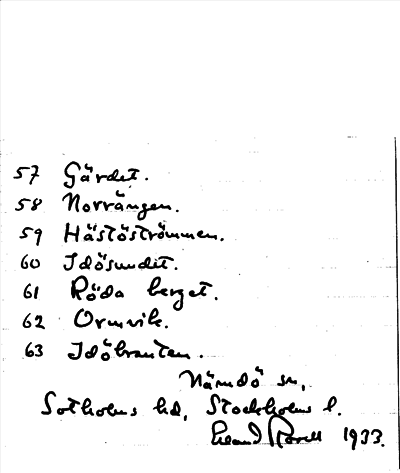 57 Gärdet.
58 Norrängen.
59 Hästöströmmen.
60 Idösundet.
61 Röda berget.
62 Ormvik.
63 Idöbranten.
Nämdö sn,
Sotholms hd, Stockholms l.
1933.